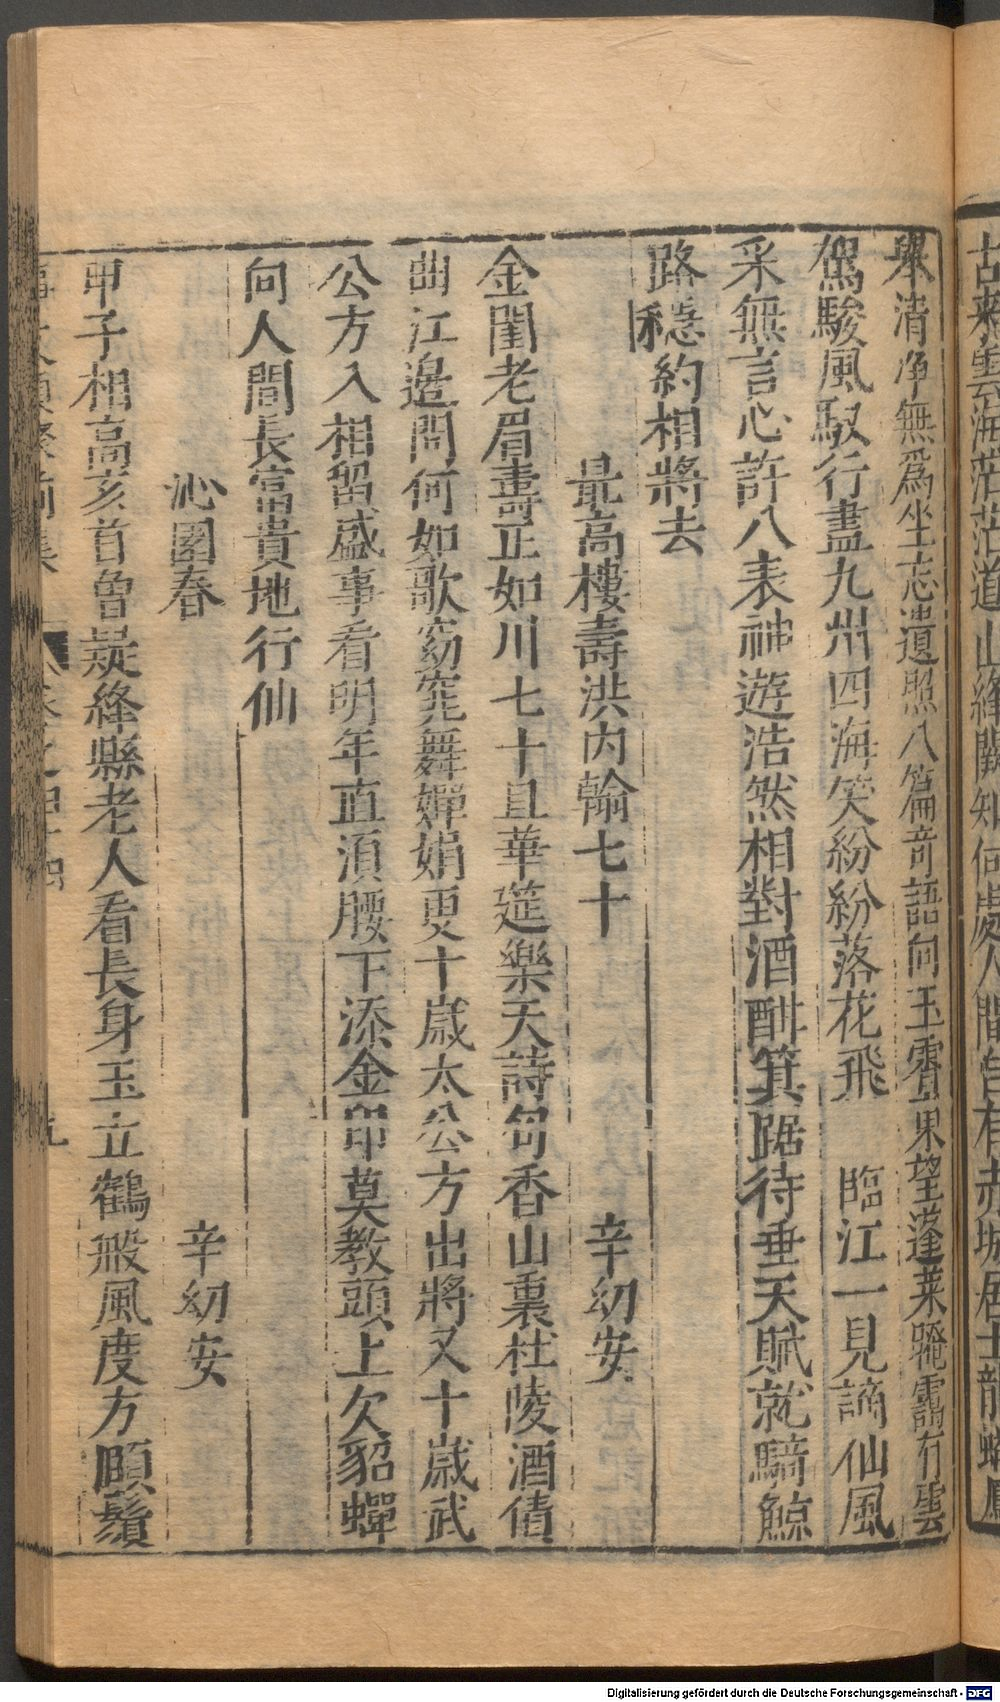 古來雲海茫茫道山絳闕知何處人間曾有赤城居士龍蟠鳳
舉清淨無爲坐忘遺照八篇奇語向玉霄東望蓬萊晻靄有雲
駕駿風馭行盡九州四海笑紛紛落花飛　臨江一見謫仙風
采無言心許八表神遊浩然相對酒酣箕踞待垂天賦就騎鯨
路穩約相將去
最高樓壽洪内翰七十　辛幼安
金閨老眉壽正如川七十且華筵樂天詩句香山裏杜陵酒債
曲江邊問何如歌窈窕舞嬋娟更十歲太公方出將又十歲武
公方入相留盛事看明年直須腰下添金印莫教頭上欠貂蟬
向人間長富貴地行仙
沁園春　辛幼安
甲子相高亥首曾疑絳縣老人看長身玉立鶴般風度方頤鬚
事文類聚前集　卷之四十四　九
Digitalisierung gefördert durch die Deutsche Forschungsgemeinschaft - DFG